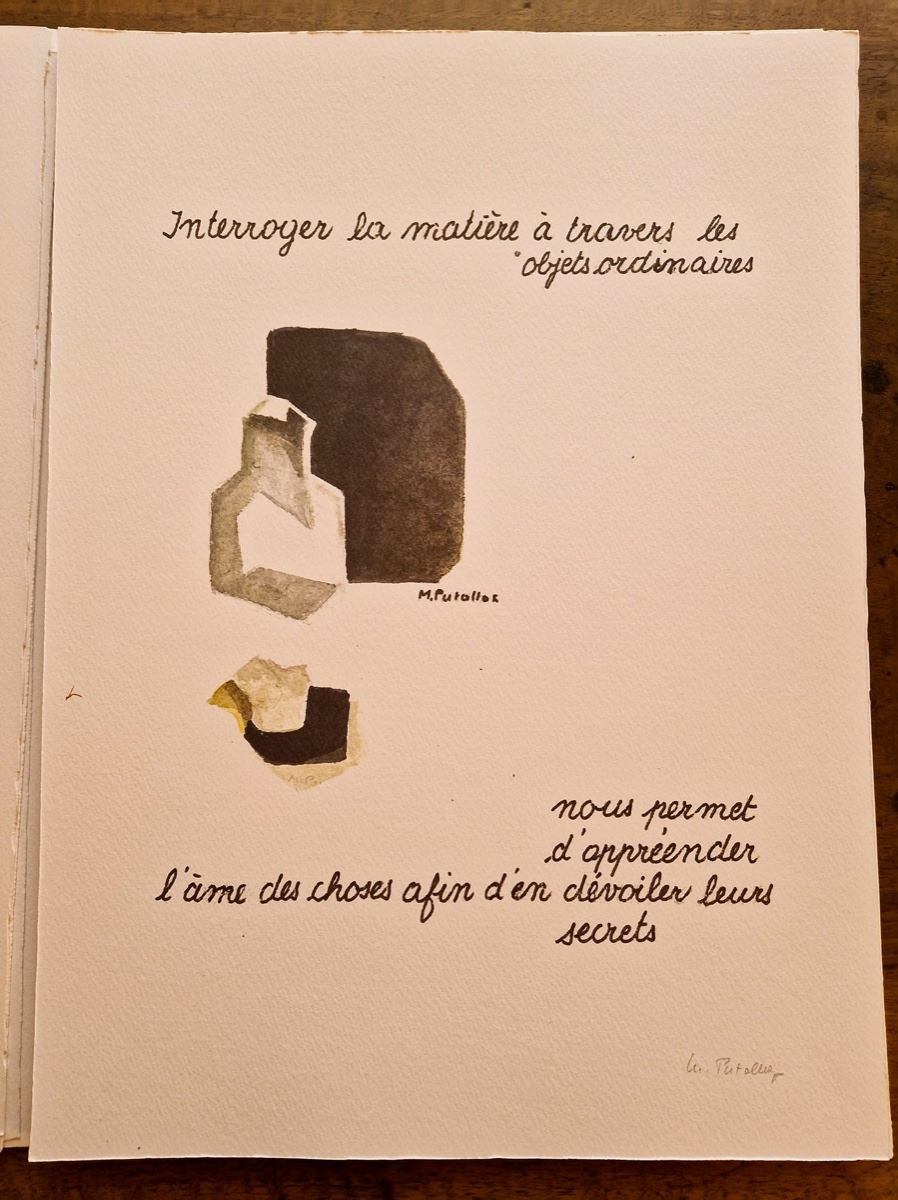 Interroger la matière à travers les
objets ordinaires
M. Putallaz
nous permet
d'appréender
l'âme des choses afin d'en dévoiler leurs
secrets
M. Putallaz